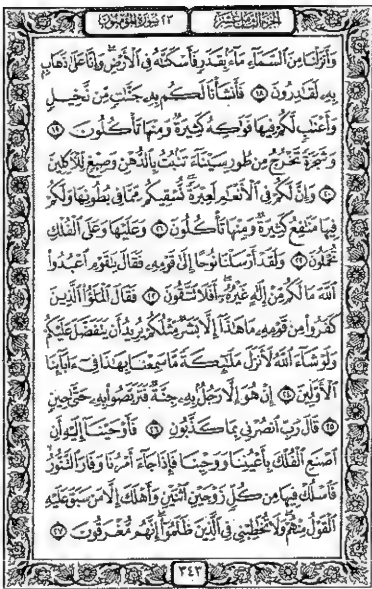 الجزء الثامن عشر ٢٣ سورة المؤمنون
وَأَنزَلْنَا مِنَ السَّمَاءِ مَاءً بِقَدَرٍ فَأَسْكَنَّاهُ فِي الْأَرْضِ وَإِنَّا عَلَىٰ ذَهَابٍ
بِهِ لَقَادِرُونَ ﴿١٨﴾ فَأَنشَأْنَا لَكُم بِهِ جَنَّاتٍ مِّن نَّخِيلٍ
وَأَعْنَابٍ لَّكُمْ فِيهَا فَوَاكِهُ كَثِيرَةٌ وَمِنْهَا تَأْكُلُونَ ﴿١٩﴾
وَشَجَرَةً تَخْرُجُ مِن طُورِ سَيْنَاءَ تَنبُتُ بِالدُّهْنِ وَصِبْغٍ لِّلْآكِلِينَ
﴿٢٠﴾ وَإِنَّ لَكُمْ فِي الْأَنْعَامِ لَعِبْرَةً نُّسْقِيكُم مِّمَّا فِي بُطُونِهَا وَلَكُمْ
فِيهَا مَنَافِعُ كَثِيرَةٌ وَمِنْهَا تَأْكُلُونَ ﴿٢١﴾ وَعَلَيْهَا وَعَلَى الْفُلْكِ
تُحْمَلُونَ ﴿٢٢﴾ وَلَقَدْ أَرْسَلْنَا نُوحًا إِلَىٰ قَوْمِهِ فَقَالَ يَا قَوْمِ اعْبُدُوا
اللَّهَ مَا لَكُم مِّنْ إِلَٰهٍ غَيْرُهُ أَفَلَا تَتَّقُونَ ﴿٢٣﴾ فَقَالَ الْمَلَؤُا الَّذِينَ
كَفَرُوا مِن قَوْمِهِ مَا هَٰذَا إِلَّا بَشَرٌ مِّثْلُكُمْ يُرِيدُ أَن يَتَفَضَّلَ عَلَيْكُمْ
وَلَوْ شَاءَ اللَّهُ لَأَنزَلَ مَلَائِكَةً مَّا سَمِعْنَا بِهَٰذَا فِي آبَائِنَا
الْأَوَّلِينَ ﴿٢٤﴾ إِنْ هُوَ إِلَّا رَجُلٌ بِهِ جِنَّةٌ فَتَرَبَّصُوا بِهِ حَتَّىٰ حِينٍ
﴿٢٥﴾ قَالَ رَبِّ انصُرْنِي بِمَا كَذَّبُونِ ﴿٢٦﴾ فَأَوْحَيْنَا إِلَيْهِ أَنِ
اصْنَعِ الْفُلْكَ بِأَعْيُنِنَا وَوَحْيِنَا فَإِذَا جَاءَ أَمْرُنَا وَفَارَ التَّنُّورُ
فَاسْلُكْ فِيهَا مِن كُلٍّ زَوْجَيْنِ اثْنَيْنِ وَأَهْلَكَ إِلَّا مَن سَبَقَ عَلَيْهِ
الْقَوْلُ مِنْهُمْ وَلَا تُخَاطِبْنِي فِي الَّذِينَ ظَلَمُوا إِنَّهُم مُّغْرَقُونَ ﴿٢٧﴾
٣٤٣